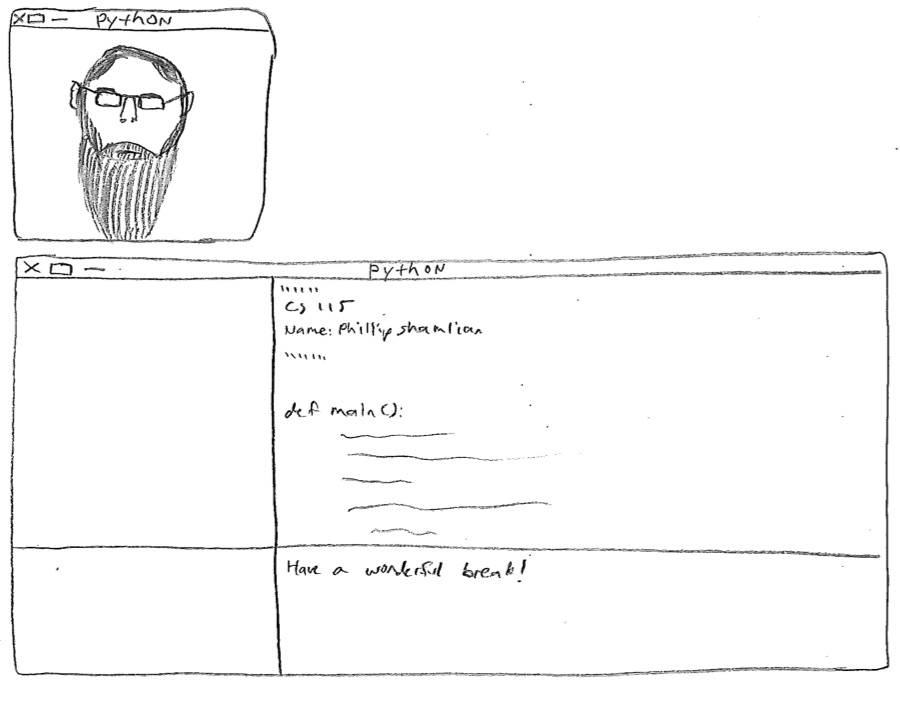 Python
Python
""""""
CS 115
Name: Phillip Shamlian
""""""
def main():
Have a wonderful break!